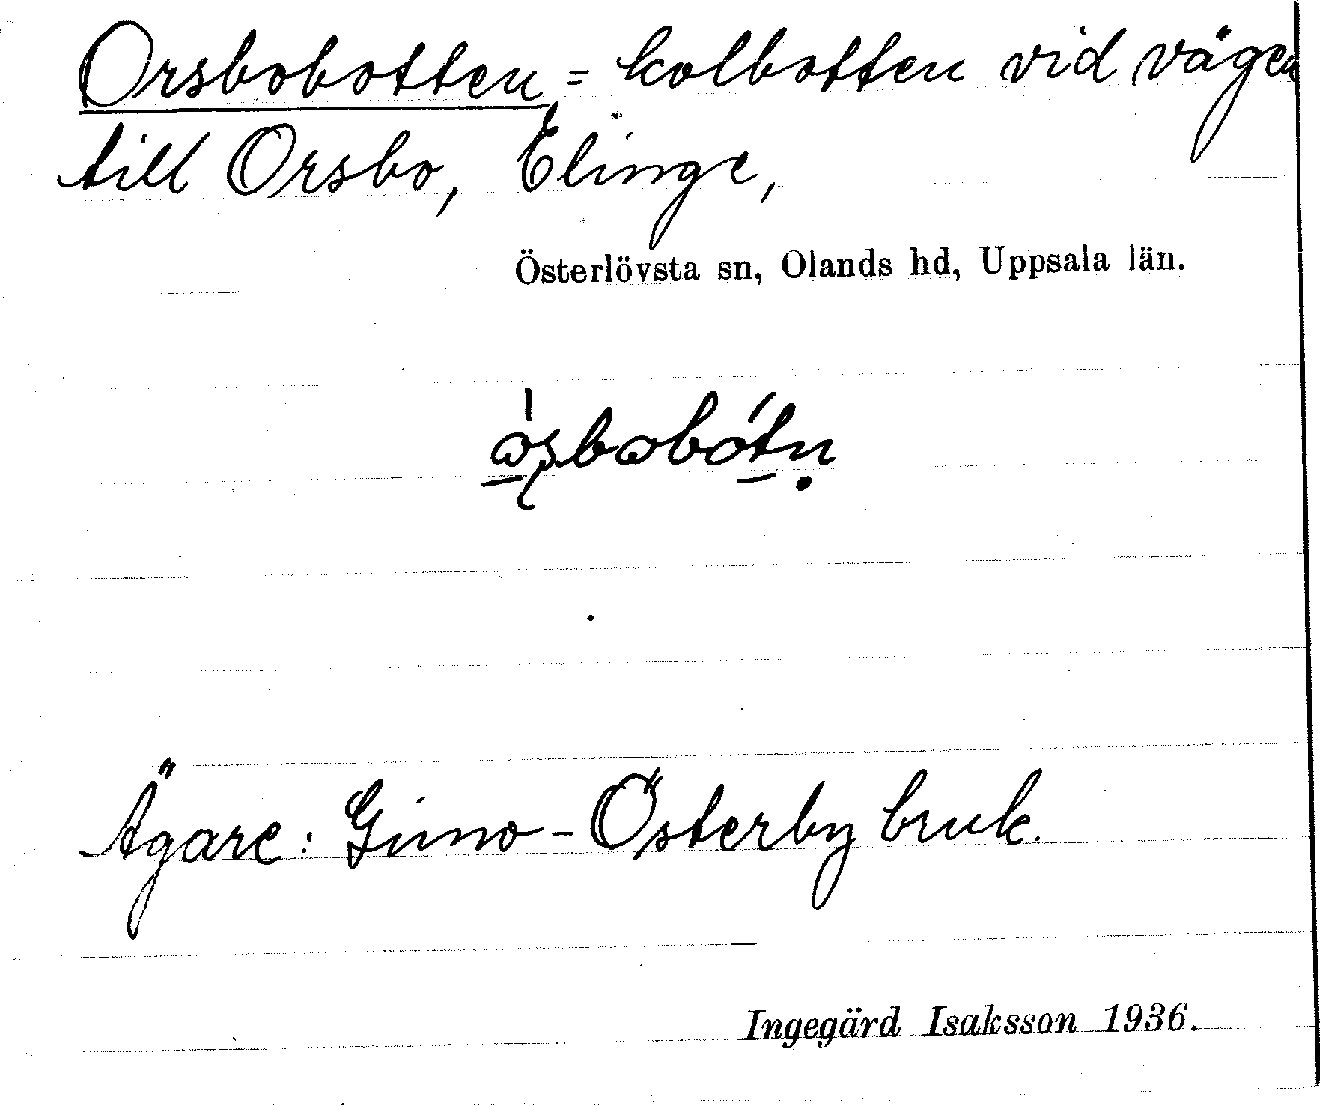 Orsbobotten = kolbotten vid vägen
till Orsbo, Elinge,
Österlövsta sn, Olands hd, Uppsala län.
Ägare: Gimo-Österby bruk.
Ingegärd Isaksson 1936.